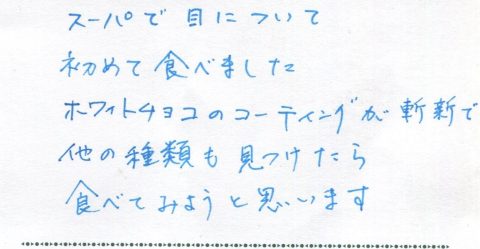 スーパで目について
初めて食べました
ホワイトチョコのコーティングが斬新で
他の種類も見つけたら
食べてみようと思います